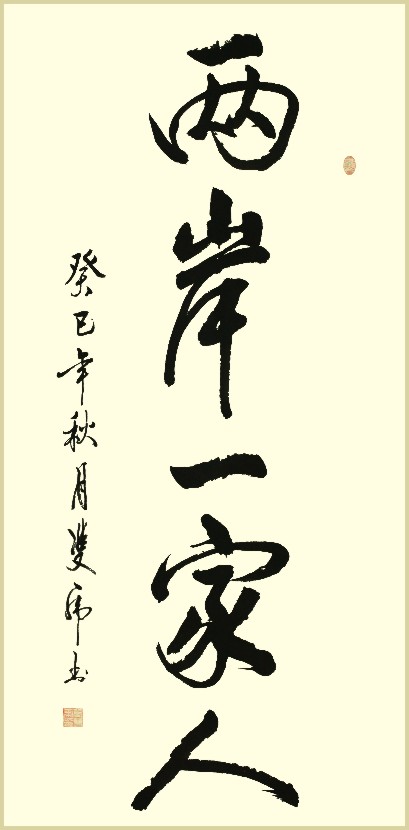 两岸一家人
癸巳年秋月雙虎书